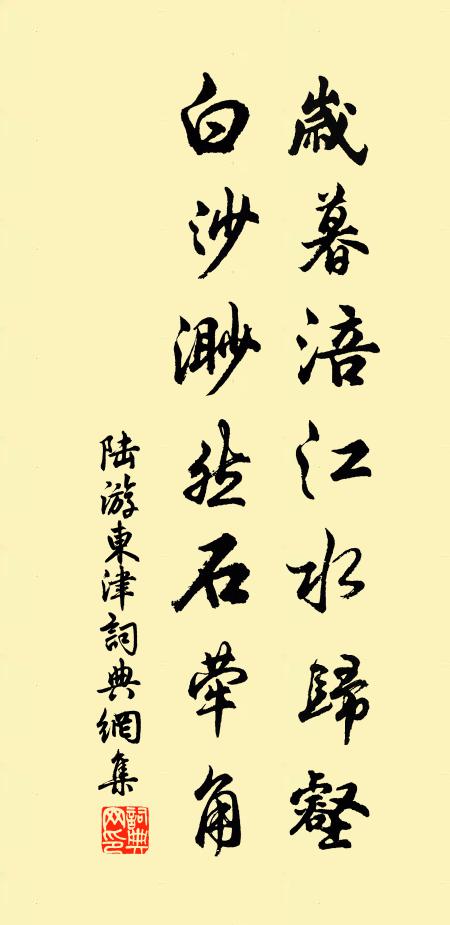 歲暮涪江水歸壑
白沙渺然石犖角
陆游東津詞典網集
詞典网印